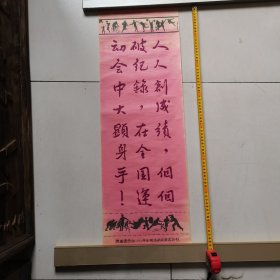 人人創成績，個個
破紀錄，在全國運
動会中大顕身手！